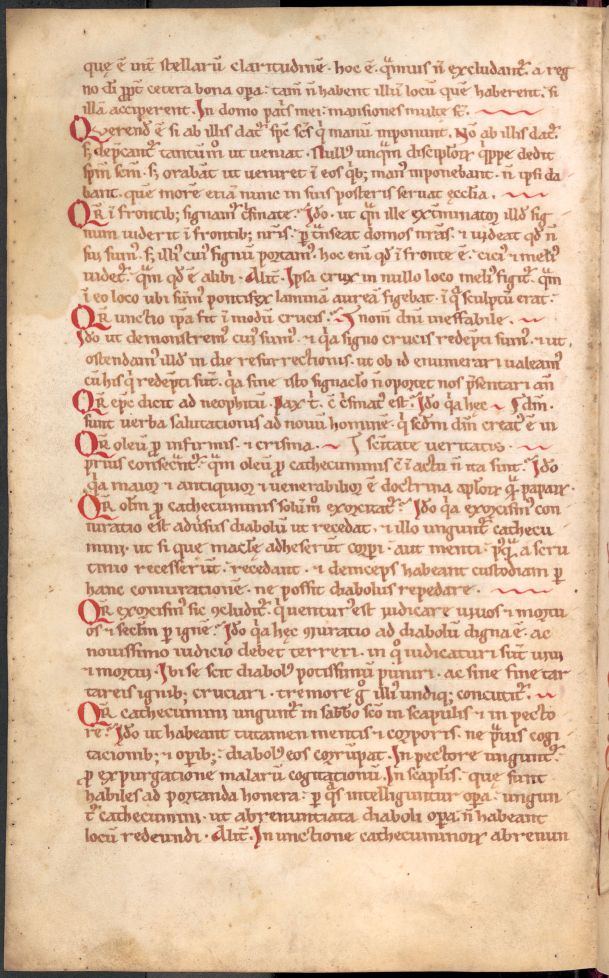 quę ē int̄ stellarū claritudinē · hoc ē · q̄muis n̄ excludant᷑ · a reg
no di̅ ꝓpt̄ cetera bona opa̅ : tam̄ n̄ habent illū locū quē haberent · si
illā acciperent · In domo pat̄s mei : mansiones multe st̄ ·
Querend̄ ē si ab illis dat᷑ sp̄c sc̄s q̇ manū inponunt · No ab illis dat᷑
s; dep̄cant᷑ tantūm̊ ut veniat · Null᷒ unq̄m discipuloꝝ q̇ppe dedit
sp̄m sc̄m · s; orabāt ut veniret ī eos q̇b; man᷒ inponebant · n̄ ipsi da
bant · que morē etiā nunc in suis posteris servat ęcclia ·
Qr̄ ī frontib; signam᷒ c̄smate · Ido · ut q̄n ille ext̄minatoꝝ illd̄ sig
num viderit ī frontib; nr̄is · p t̄nseat domos nr̄as · ⁊ videat qd̄ n̄
sui sum᷒ · s; illi᷒ cui᷒ signū portam᷒ · hoc eni̅ qd̄ ī fronte ē · citi᷒ ⁊ meli᷒
videt᷑ · q̄m qd̄ ē alibi · Alit̄ · Ipsa crux in nullo loco meli᷒ figit᷑ q̄m
ī eo loco ubi sūm᷒ pontifex laminā aureā figebat · ī q̇ sculptū erat :
Qr̄ unctio ip̄a fit ī modū crucis · nom̄ dn̄i ineffabile ·
Ido ut demonstrem᷒ cui᷒ sum᷒ · ⁊ q̇a signo crucis redēpti sum᷒ · ⁊ ut
ostendam᷒ illd̄ in die resurrectionis · ut ob id enumerari valeam᷒
cū his q̇ redēpti sūt · q̇a sine isto signacl̄o n̄ oportet nos p̄sentari an̄
Qr̄ epc̄ dicit ad neophitū · Pax t̊ · c̄ c̄smat᷒ est · Ido q̇a hęc dm̄ ·
sunt verba salutatoris ad novū hominē · q̇ scdm̄ dm̄ creat᷒ ē in
Qr̄ oleū ꝓ infirmis · ⁊ crisma · sc̄itate veritatis ·
prius consec̄nt᷑ · q̄m oleū ꝓ cathecuminis c̄ ī actu n̄ ita sint · Ido
q̇a maior ⁊ antiquior ⁊ venerabilior ē doctrina aplōꝝ q̄ paparꝝ ·
Qr̄ olm̄ ꝓ cathecuminis solūm̊ exorcizat᷑ · Ido q̇a exorcism᷒ con
iuratio est adūsus diabolū ut recedat · ⁊ illo ungunt᷑ cathecu
mini · ut si que macl̄ę adheserūt corpi · aut menti : p᷒q̄ a scru
tinio recesserūt : recedant · ⁊ deinceps habeant custodiam p
hanc coniurationē · ne possit diabolus repedare ·
Qr̄ exorcism᷒ sic ꝯcludit᷑ · q̇ ventur᷒ est iudicare vivos ⁊ mortu
os ⁊ seclm̄ p ignē · Ido q̇a hęc ꝯiuratio ad diabolū digna ē · ac
novissimo iudicio debet terreri · in q̇ iudicaturi sūt vivi
⁊ mortui · Ibi se scit diabol᷒ potissimū puniri · ac sine fine tar
tareis ignib; cruciari · tremore g̊ illi᷒ undiq; concutit᷑ ·
Qr̄ cathecumini ungunt᷑ in sabb̄o sc̄o in scapulis ⁊ in pecto
re · Ido ut habeant tutamen mentis ⁊ corporis · ne p̄uis cogi
tacionib; ⁊ opib; : diabol᷒ eos corrūpat · In pectore ungunt᷑
ꝓ expurgatione malarū cogitationū · In scaplis · que sunt
habiles ad portanda honera : p q̄s intelliguntur opa̅ : ungun
t᷑ cathecumini · ut abrenuntiata diaboli opa̅ n̄ habeant
locū redeundi · Alit̄ · In unctione cathecuminoꝝ abrenun